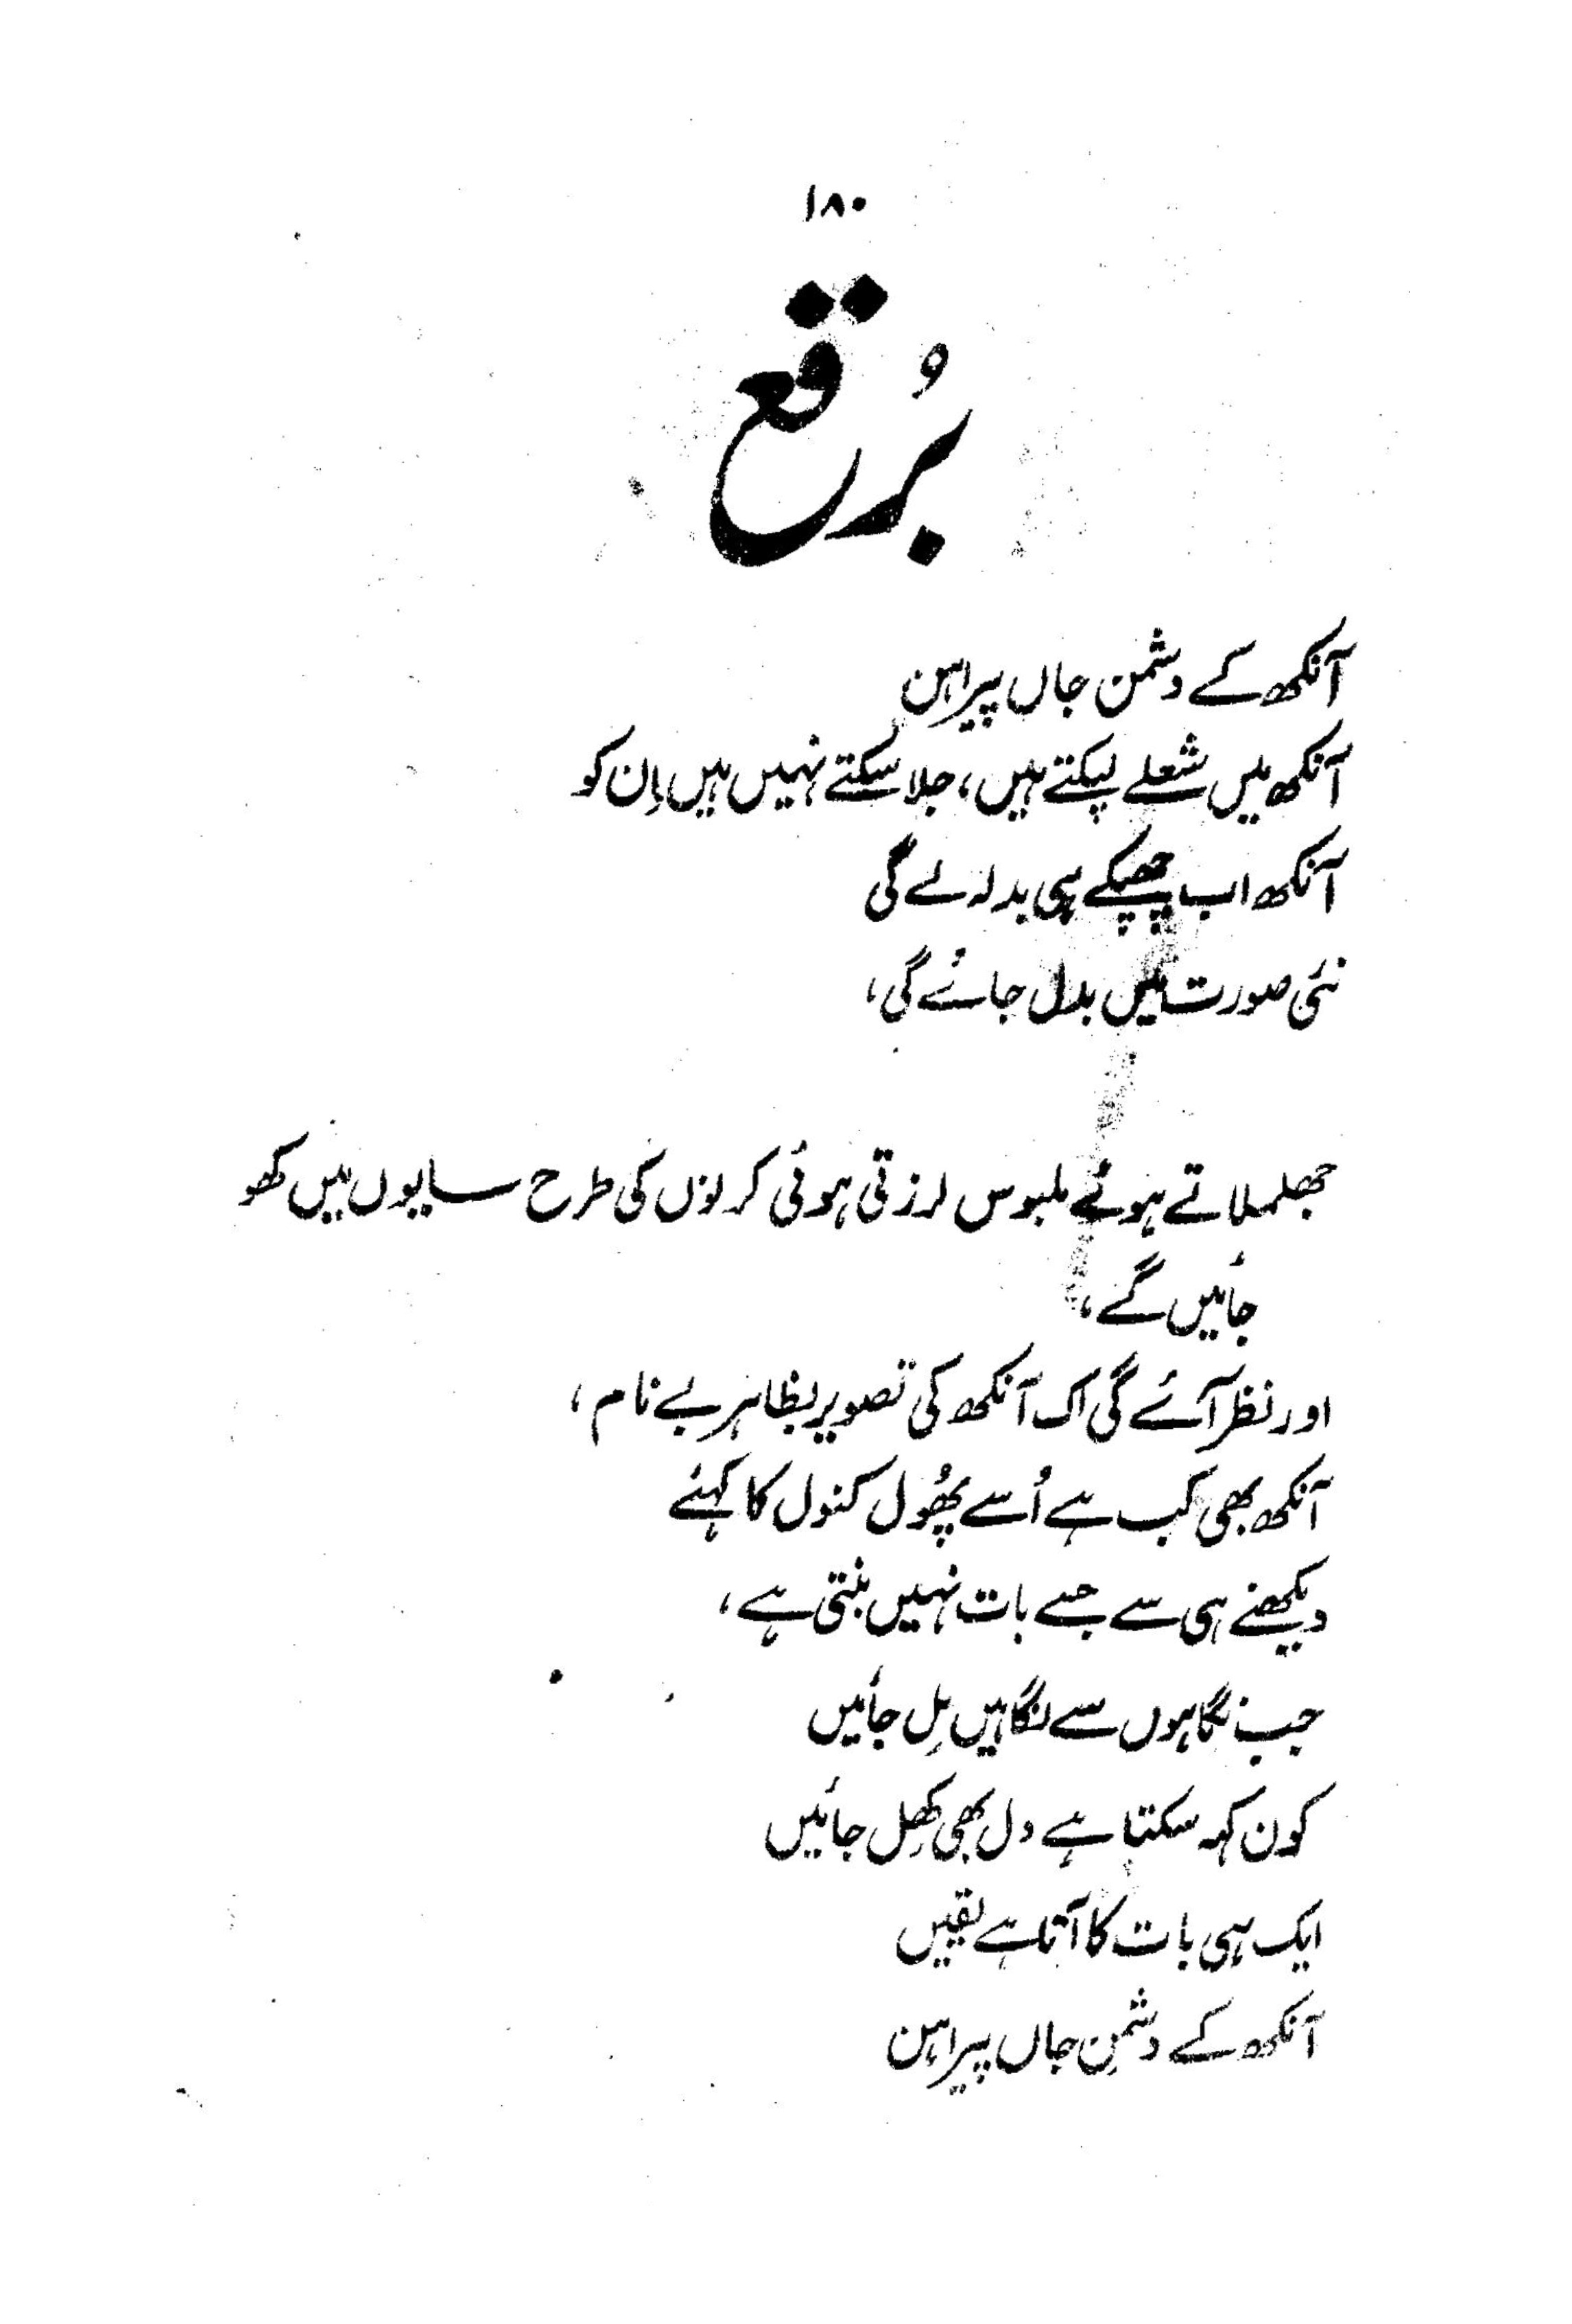 ۱۸۰
بُرقع
آنکھ کے دشمن جاں پیراہن
آنکھ میں شعلے لپکتے ہیں، جلا سکتے نہیں ہیں اِن کو
آنکھ اب چھپکے ہی بدلہ لے گی
نئی صورت میں بدل جائے گی،
جھلملاتے ہوئے ملبوس لرزتی ہوئی کرنوں کی طرح سایوں میں کھو
جائیں گے،
اور نظر آئے گی اک آنکھ کی تصویر بظاہر بے نام،
آنکھ بھی کب ہے اُسے پھُول کنول کا کہئے
دیکھنے ہی سے جسے بات نہیں بنتی ہے،
جب نگاہوں سے نگاہیں مِل جائیں
کون کہہ سکتا ہے دل بھی کھِل جائیں
ایک ہی بات کا آتا ہے یقیں
آنکھ کے دشمنِ جاں پیراہن